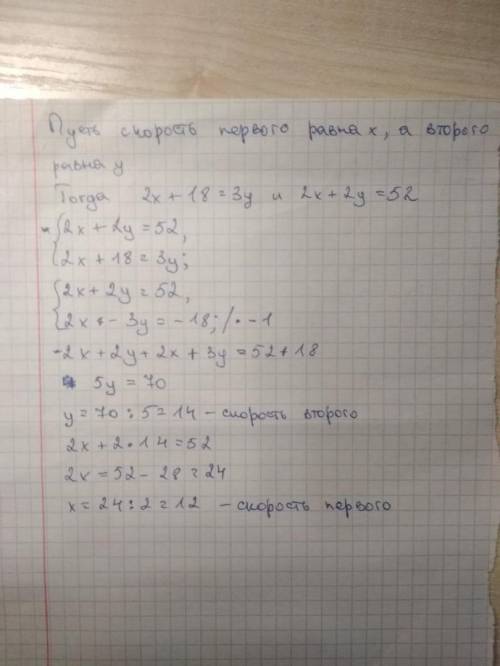 Пусть скорость первого равна x, а второго
равна y
Тогда 2x + 18 = 3y и 2x + 2y = 52
{2x + 2y = 52,
{2x + 18 = 3y;
{2x + 2y = 52,
{2x - 3y = -18; / · -1
-2x + 2y + 2x + 3y = 52 + 18
5y = 70
y = 70 : 5 = 14 - скорость второго
2x + 2 · 14 = 52
2x = 52 - 28 = 24
x = 24 : 2 = 12 - скорость первого